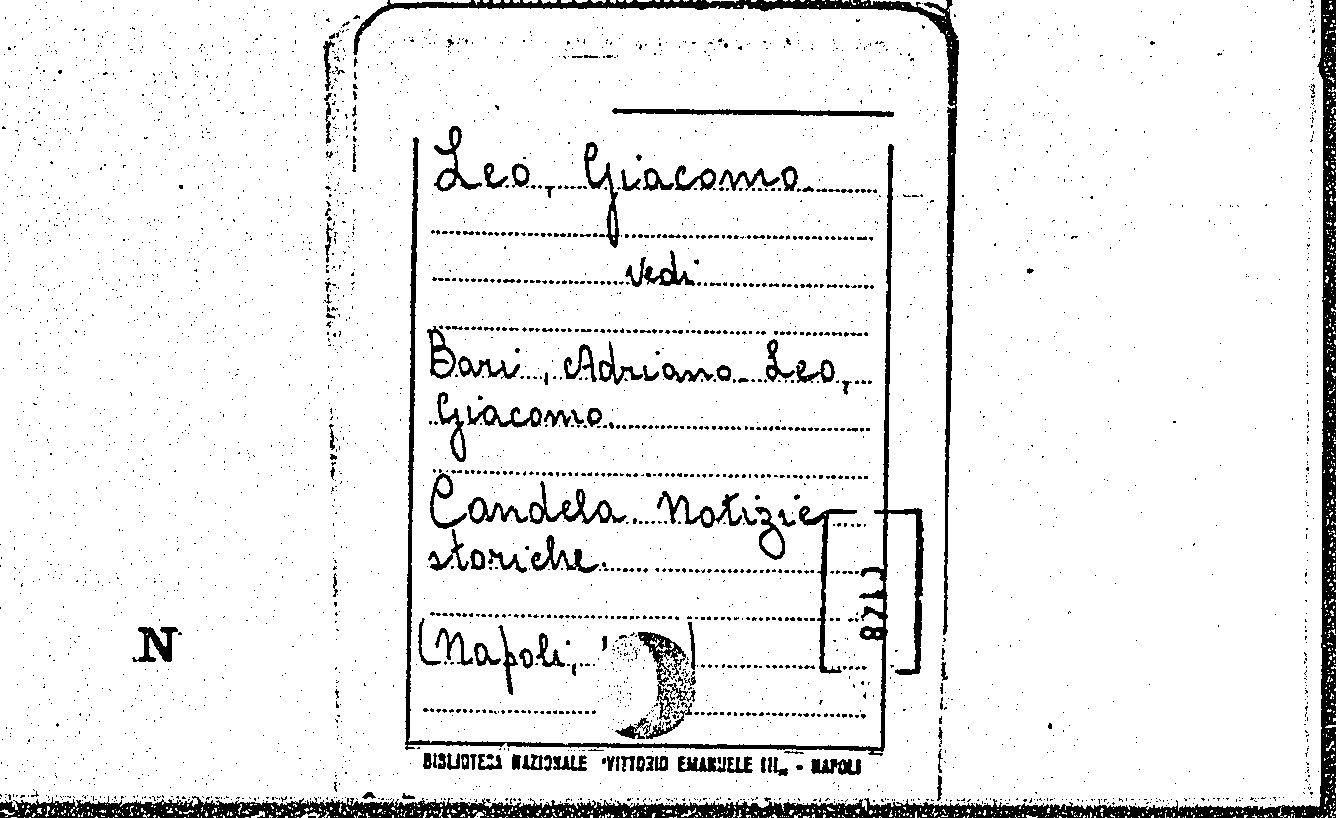 Leo, Giacomo.
vedi
Bari, Adriano - Leo,
Giacomo.
Candela. Notizie
storiche.
(Napoli, ' )
N
BIBLIOTECA NAZIONALE "VITTORIO EMANUELE III„ - NAPOLI